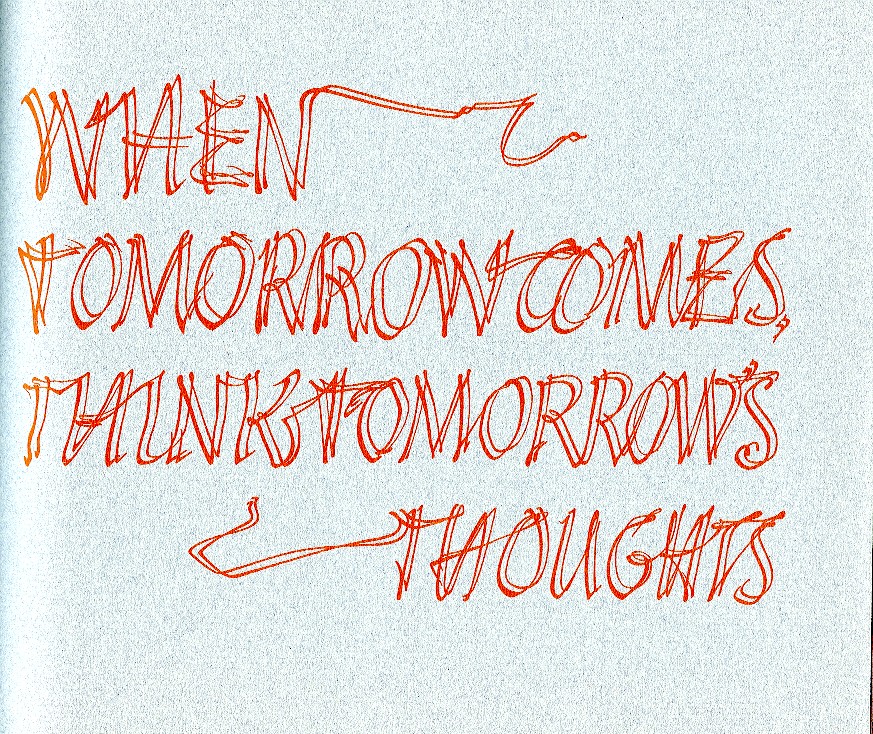 WHEN
TOMORROW COMES,
THINK TOMORROW'S
THOUGHTS